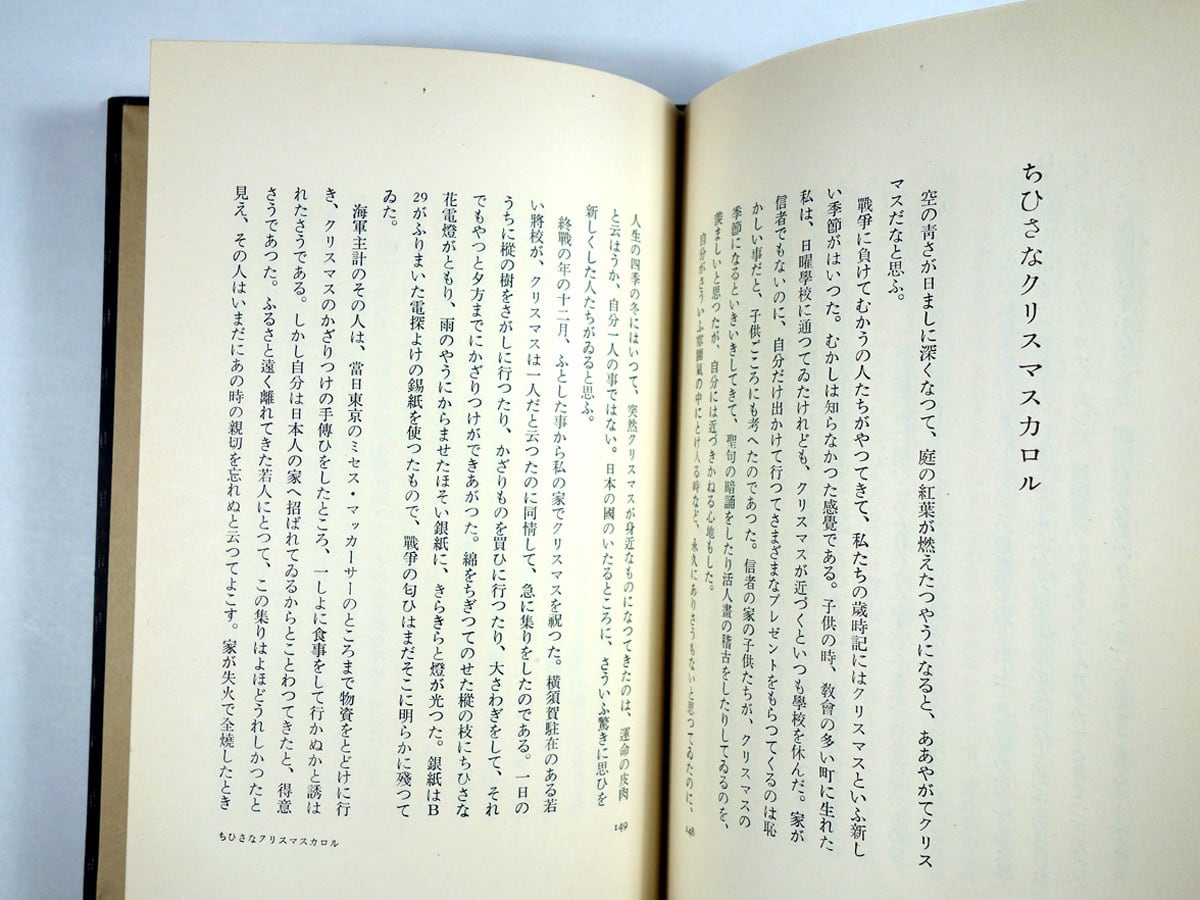 ちひさなクリスマスカロル
空の靑さが日ましに深くなつて、庭の紅葉が燃えたつやうになると、ああやがてクリス
マスだなと思ふ。
戰爭に負けてむかうの人たちがやつてきて、私たちの歳時記にはクリスマスといふ新し
い季節がはいつた。むかしは知らなかつた感覺である。子供の時、敎會の多い町に生れた
私は、日曜學校に通つてゐたけれども、クリスマスが近づくといつも學校を休んだ。家が
信者でもないのに、自分だけ出かけて行つてさまざまなプレゼントをもらつてくるのは恥
かしい事だと、子供ごころにも考へたのであつた。信者の家の子供たちが、クリスマスの
季節になるといきいきしてきて、聖句の暗誦をしたり活人畫の稽古をしたりしてゐるのを、
羨ましいと思つたが、自分には近づきかねる心地もした。
自分がさういふ雰圍氣の中にとけ入る時など、永久にありさうもないと思つてゐたのに、
148
人生の四季の冬にはいつて、突然クリスマスが身近なものになつてきたのは、運命の皮肉
と云はうか、自分一人の事ではない。日本の國のいたるところに、さういふ驚きに思ひを
新しくした人たちがゐると思ふ。
終戰の年の十二月、ふとした事から私の家でクリスマスを祝つた。橫須賀駐在のある若
い將校が、クリスマスは一人だと云つたのに同情して、急に集りをしたのである。一日の
うちに樅の樹をさがしに行つたり、かざりものを買ひに行つたり、大さわぎをして、それ
でもやつと夕方までにかざりつけができあがつた。綿をちぎつてのせた樅の枝にちひさな
花電燈がともり、雨のやうにからませたほそい銀紙に、きらきらと燈が光つた。銀紙はB
29がふりまいた電探よけの錫紙を使つたもので、戰爭の匂ひはまだそこに明らかに殘つて
ゐた。
海軍主計のその人は、當日東京のミセス・マッカーサーのところまで物資をとどけに行
き、クリスマスのかざりつけの手傳ひをしたところ、一しよに食事をして行かぬかと誘は
れたさうである。しかし自分は日本人の家へ招ばれてゐるからとことわつてきたと、得意
さうであつた。ふるさと遠く離れてきた若人にとつて、この集りはよほどうれしかつたと
見え、その人はいまだにあの時の親切を忘れぬと云つてよこす。家が失火で全燒したとき
149
ちひさなクリスマスカロル